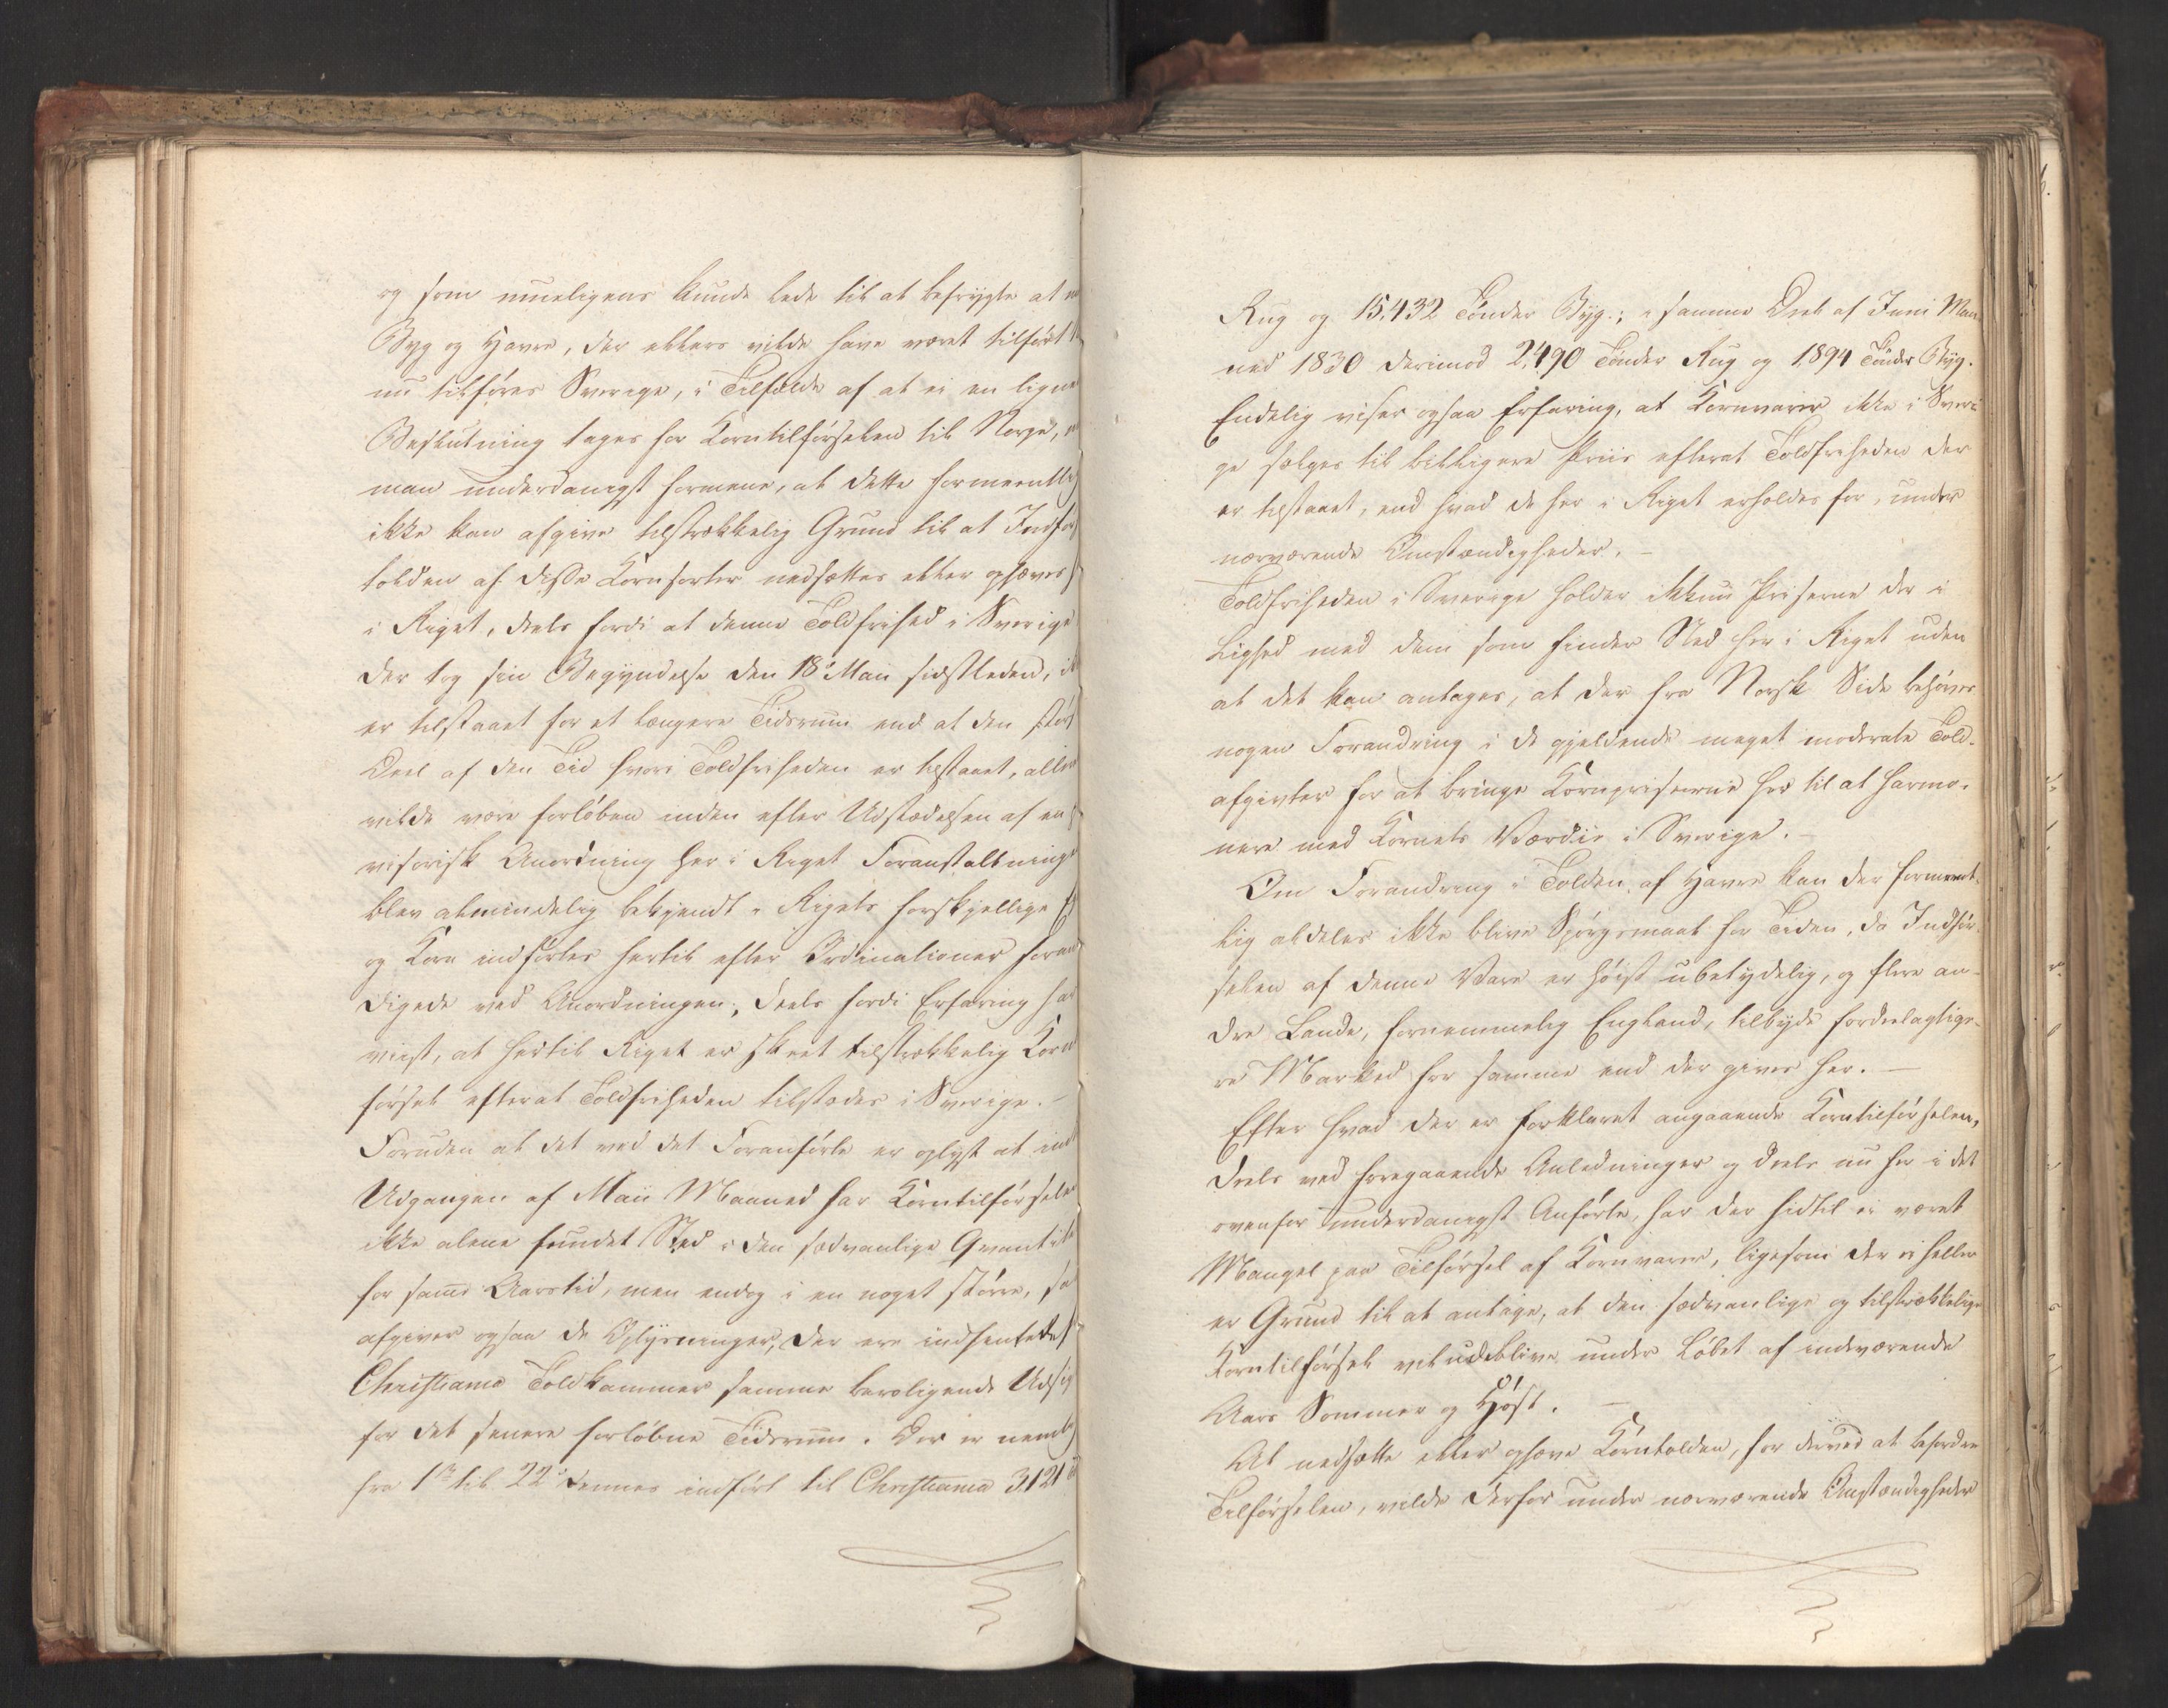 og som mueligens kunde lede til at befrygte at
Byg og Havre, der ellers vilde have været tilført
nu tilføres Sverige, i Tilfælde af at ei en ligne
Beslutning tages for Korntilførselen til Norge,
man underdanigst formene, at dette formeentlig
ikke kan afgive tilstrækkelig Grund til at Indfør
tolden af disse Kornsorter nedsættes eller ophæves
i Riget, deels fordi at denne Toldfrihed i Sverige
der tog sin Begyndelse den 18de Mai sidstleden,
er tilstaaet for et længere Tidsrum end at den stør
Deel af den Tid hvori Toldfriheden er tilstaaet, aller
vilde være forløben inden efter Udstædelsen af en
visorisk Anordning her i Riget Foranstaltninge
blev almindelig bekjendt i Rigets forskjellige
og Korn indførtes hertil efter Ordinationer foran
digede ved Anordningen; deels fordi Erfaring har
viist, at hertil Riget er skeet tilstrækkelig Korn
førsel efterat Toldfriheden tilstodes i Sverige.
Foruden at det ved det Foranførte er oplyst at ind
Udgangen af Maii Maaned har Korntilførselen
ikke alene fundet Sted i den sædvanlige Qvantite
for samme Aarstid, men endog i en noget større, saa
afgiver ogsaa de Oplysninger, der ere indhentede
Christiania Toldkammer samme beroligende Udsig
for det senere forløbne Tidsrum. Der er nemlig
fra 1ste til 22de dennes indført til Christiania 3121
Rug og 15,432 Tønder Byg.; i samme Deel af Juni Maa-
ned 1830 derimod 2,490 Tønder Rug og 1,894 Tønder Byg.
Endelig viser ogsaa Erfaring, at Kornvarer ikke i Sveri-
ge sælges til billigere Priis efterat Toldfriheden der
er tilstaaet, end hvad de her i Riget erholdes for, under
nærværende Omstændigheder. —
Toldfriheden i Sverige holder ikkun Priserne der i
Lighed med dem som finder Sted her i Riget uden
at det kan antages, at der fra Norsk Side behøves
nogen Forandring i de gjeldende meget moderate Told-
afgivter for at bringe Kornpriserne her til at harmo-
nere med Kornets Værdie i Sverige. —
Om Forandring i Tolden af Havre kan der formeent-
lig aldeles ikke blive Spørgsmaal for Tiden, da Indfør-
selen af denne Vare er høist ubetydelig, og flere an-
dre Lande, fornemmelig England, tilbyde fordeelagtige-
re Marked for samme end der gives her. —
Efter hvad der er forklaret angaaende Korntilførselen,
deels ved foregaaende Anledninger og deels nu her i det
ovenfor underdanigst Anførte, har der hidtil ei været
Mangel paa Tilførsel af Kornvarer, ligesom der ei heller
er Grund til at antage, at den sædvanlige og tilstrækkelige
Korntilførsel vil udeblive under Løbet af indeværende
Aars Sommer og Høst. —
At nedsætte eller ophæve Korntolden, for derved at befordre
Tilførselen, vilde derfor under nærværende Omstændigheder